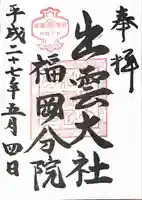 奉拝
出雲大社
福岡分院
平成二十七年五月四日